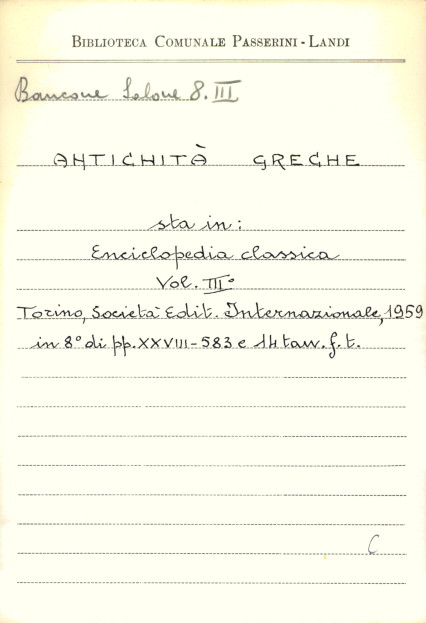 BIBLIOTECA COMUNALE PASSERINI - LANDI
Bancone Salone 8.III
ANTICHITÀ GRECHE
sta in:
Enciclopedia classica
Vol. III°
Torino, Società Edit. Internazionale, 1959
in 8° di pp. XXVIII-583 e 14 tav. f. t.
C